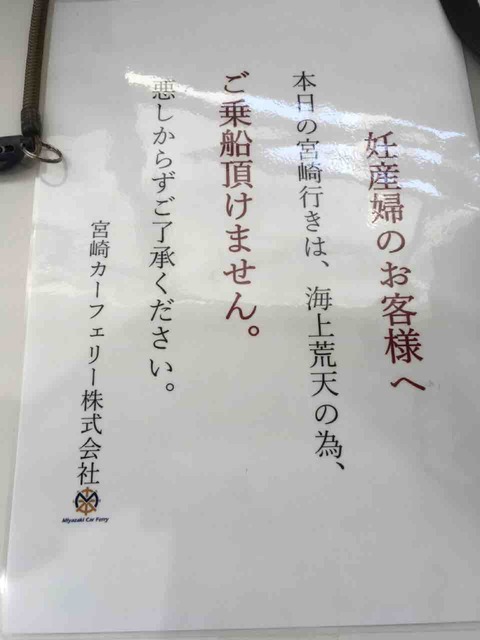 妊産婦のお客様へ
本日の宮崎行きは、海上荒天の為、
ご乗船頂けません。
悪しからずご了承ください。
宮崎カーフェリー株式会社
Miyazaki Car Ferry